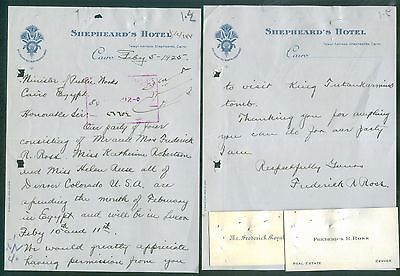 SHEPHEARD'S HOTEL
Cairo, Feby 5- 1925-
Minister of Public Works
Cairo Egypt
Honorable Sir-
Our party of four
consisting of Mr and Mrs Fredrick
R. Ross. Miss Katherine Robertson
and Miss Helen Reese all of
Denver Colorado U.S.A. are
spending the month of February
in Egypt and will be in Luxor
Feby 10th and 11th.
We would greatly appreciate
having permission from you
SHEPHEARD'S HOTEL
Cairo,
to visit King Tutankarmins
tomb.
Thanking you for anything
you can do for our party
I am
Respectfully Yours
Frederick R Ross.
Mr. Frederick
FREDERICK R. ROSS
REAL ESTATE
DENVER